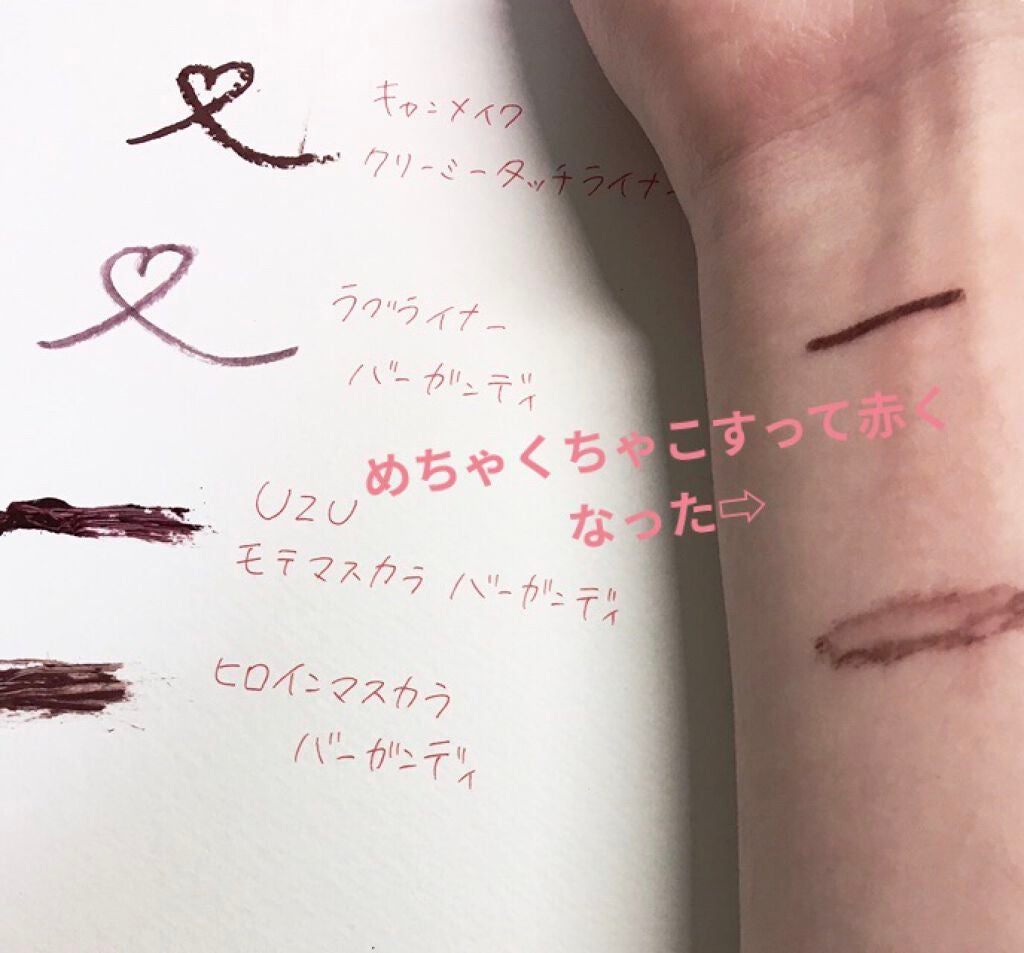 キャンメイク
クリーミータッチライナー
ラブライナー
バーガンディ
めちゃくちゃこすって赤く
なった⇨
UZU
モテマスカラ バーガンディ
ヒロインマスカラ
バーガンディ